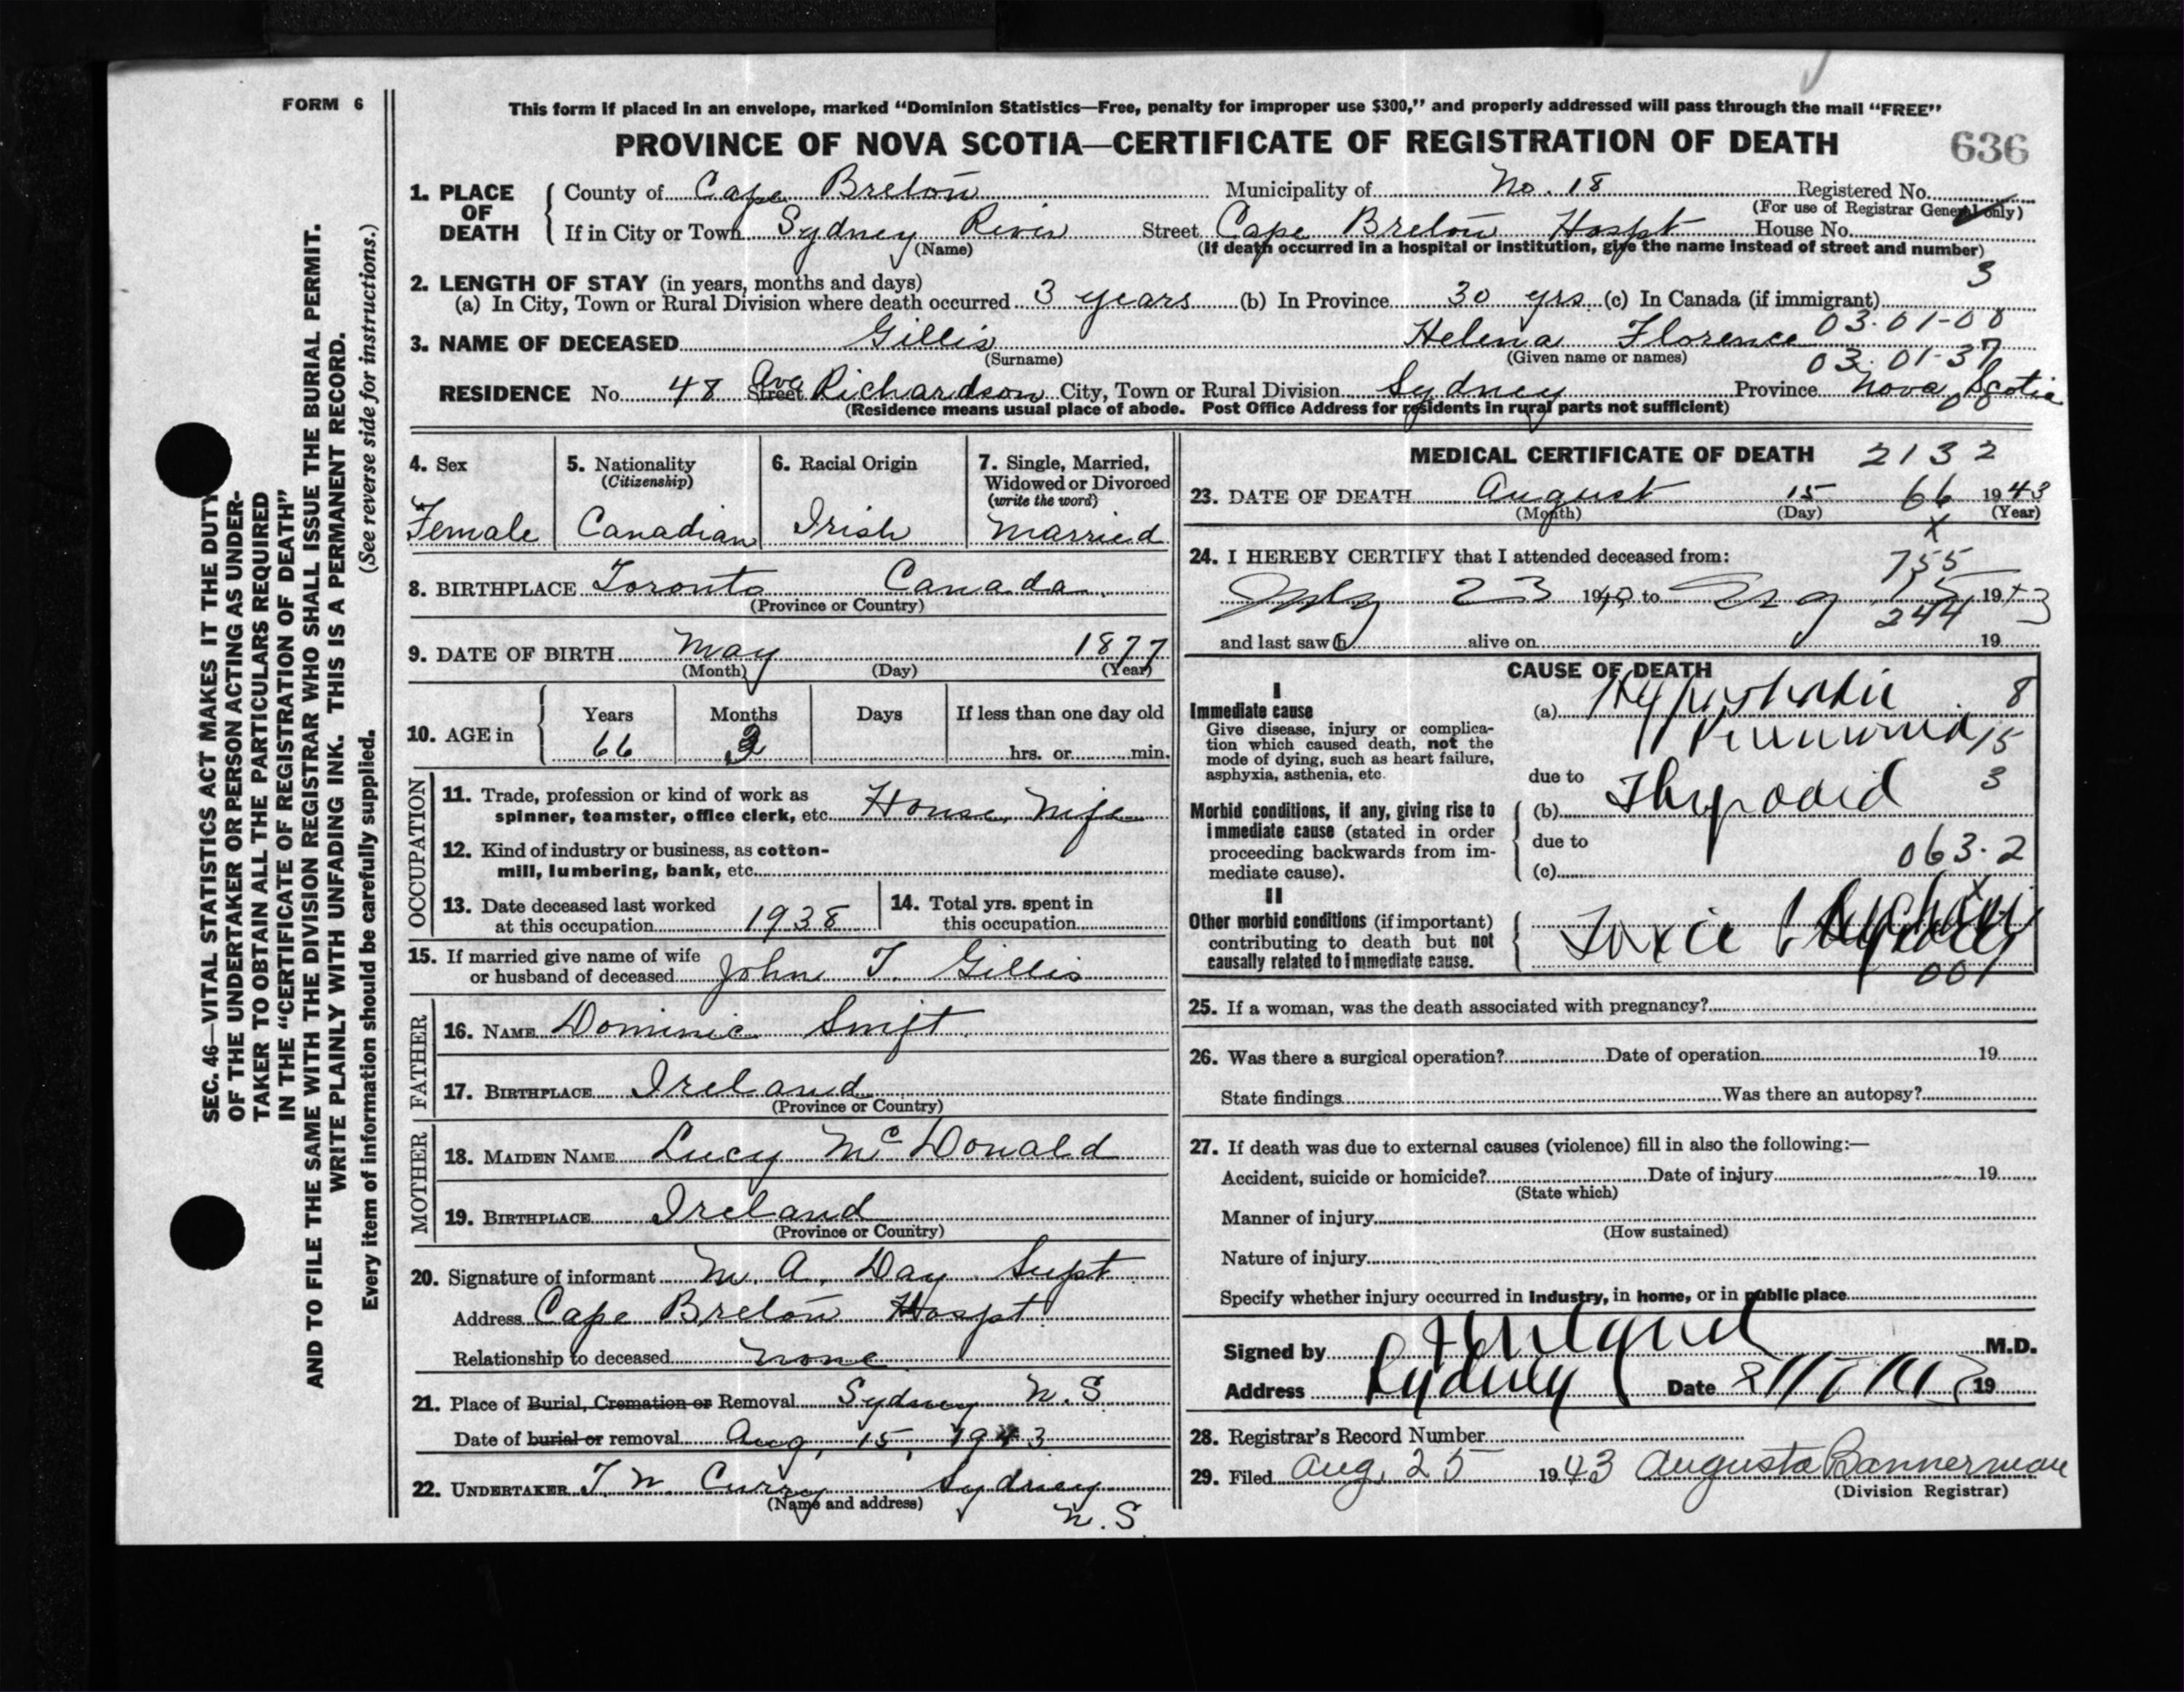 FORM 6
This form if placed in an envelope, marked “Dominion Statistics—Free, penalty for improper use $300,” and properly addressed will pass through the mail “FREE”
PROVINCE OF NOVA SCOTIA—CERTIFICATE OF REGISTRATION OF DEATH 636
1. PLACE OF DEATH
County of Cape Breton Municipality of No. 18 Registered No.
(For use of Registrar General only)
If in City or Town Sydney River Street Cape Breton Hospt House No.
(Name) (If death occurred in a hospital or institution, give the name instead of street and number)
3
2. LENGTH OF STAY (in years, months and days)
(a) In City, Town or Rural Division where death occurred 3 years (b) In Province 30 yrs. (c) In Canada (if immigrant)
03.01-00
3. NAME OF DECEASED Gillis Helena Florence
(Surname) (Given name or names) 03.01-37
RESIDENCE No. 48 Street Ave Richardson City, Town or Rural Division Sydney Province Nova Scotia
(Residence means usual place of abode. Post Office Address for residents in rural parts not sufficient)
4. Sex
Female
5. Nationality
(Citizenship)
Canadian
6. Racial Origin
Irish
7. Single, Married,
Widowed or Divorced
(write the word)
Married
8. BIRTHPLACE Toronto Canada
(Province or Country)
9. DATE OF BIRTH May 1877
(Month) (Day) (Year)
10. AGE in
Years Months Days If less than one day old
66 3 hrs. or min.
OCCUPATION
11. Trade, profession or kind of work as
spinner, teamster, office clerk, etc. House Wife
12. Kind of industry or business, as cotton-
mill, lumbering, bank, etc.
13. Date deceased last worked
at this occupation 1938
14. Total yrs. spent in
this occupation
15. If married give name of wife
or husband of deceased John T. Gillis
FATHER
16. NAME Dominic Swift
17. BIRTHPLACE Ireland
(Province or Country)
MOTHER
18. MAIDEN NAME Lucy McDonald
19. BIRTHPLACE Ireland
(Province or Country)
20. Signature of informant M. A. Day Supt
Address Cape Breton Hospt
Relationship to deceased none
21. Place of Burial, Cremation or Removal Sydney N.S
Date of burial or removal Aug, 15, 1943
22. UNDERTAKER T. W. Curry Sydney
(Name and address)
N.S.
MEDICAL CERTIFICATE OF DEATH 2132
23. DATE OF DEATH August 15 66 1943
(Month) (Day) (Year)
x
24. I HEREBY CERTIFY that I attended deceased from:
755
July 23 1940 to Aug 15 1943
244
and last saw h alive on 19
CAUSE OF DEATH
I
Immediate cause
Give disease, injury or complica-
tion which caused death, not the
mode of dying, such as heart failure,
asphyxia, asthenia, etc.
(a) Hypostatic 8
Pneumonia 15
due to 3
Morbid conditions, if any, giving rise to
immediate cause (stated in order
proceeding backwards from im-
mediate cause).
(b) Thyrooid
due to 063.2
(c)
II
Other morbid conditions (if important)
contributing to death but not
causally related to immediate cause.
Toxic
001
25. If a woman, was the death associated with pregnancy?
26. Was there a surgical operation? Date of operation 19
State findings Was there an autopsy?
27. If death was due to external causes (violence) fill in also the following:—
Accident, suicide or homicide? Date of injury 19
(State which)
Manner of injury
(How sustained)
Nature of injury
Specify whether injury occurred in industry, in home, or in public place
Signed by M.D.
Address Sydney Date 19
28. Registrar's Record Number
29. Filed Aug. 25 1943 Augusta Bannerman
(Division Registrar)
SEC. 46—VITAL STATISTICS ACT MAKES IT THE DUTY
OF THE UNDERTAKER OR PERSON ACTING AS UNDER-
TAKER TO OBTAIN ALL THE PARTICULARS REQUIRED
IN THE “CERTIFICATE OF REGISTRATION OF DEATH”
AND TO FILE THE SAME WITH THE DIVISION REGISTRAR WHO SHALL ISSUE THE BURIAL PERMIT.
WRITE PLAINLY WITH UNFADING INK. THIS IS A PERMANENT RECORD.
Every item of information should be carefully supplied. (See reverse side for instructions.)